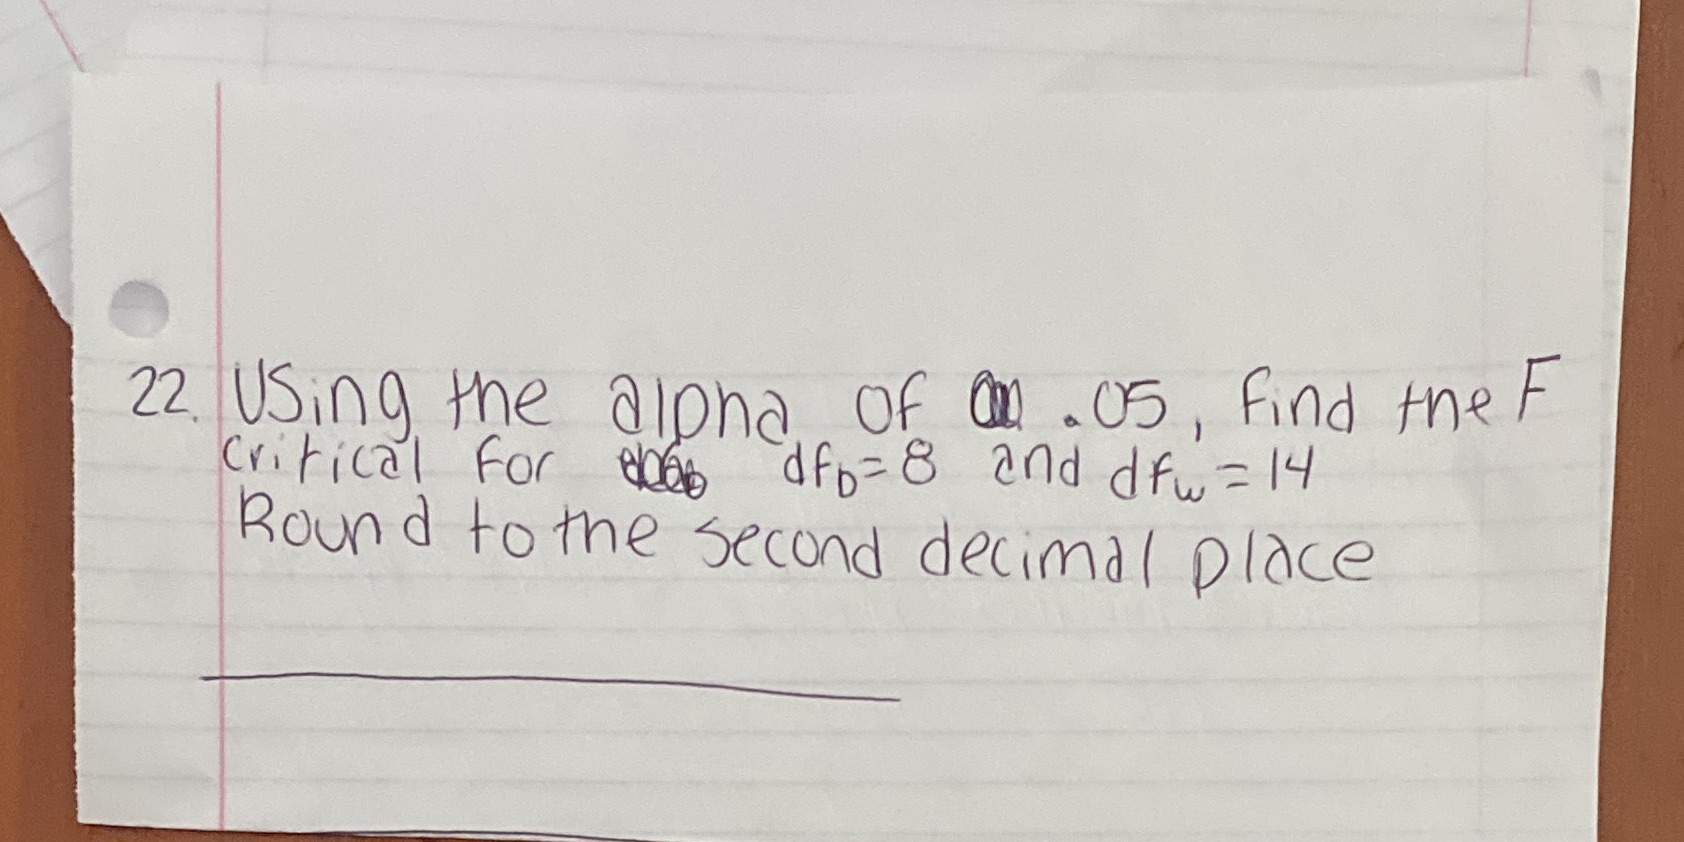 22. Using the alpha of .05, find the F
critical for dfb=8 and dfw=14
Round to the second decimal place